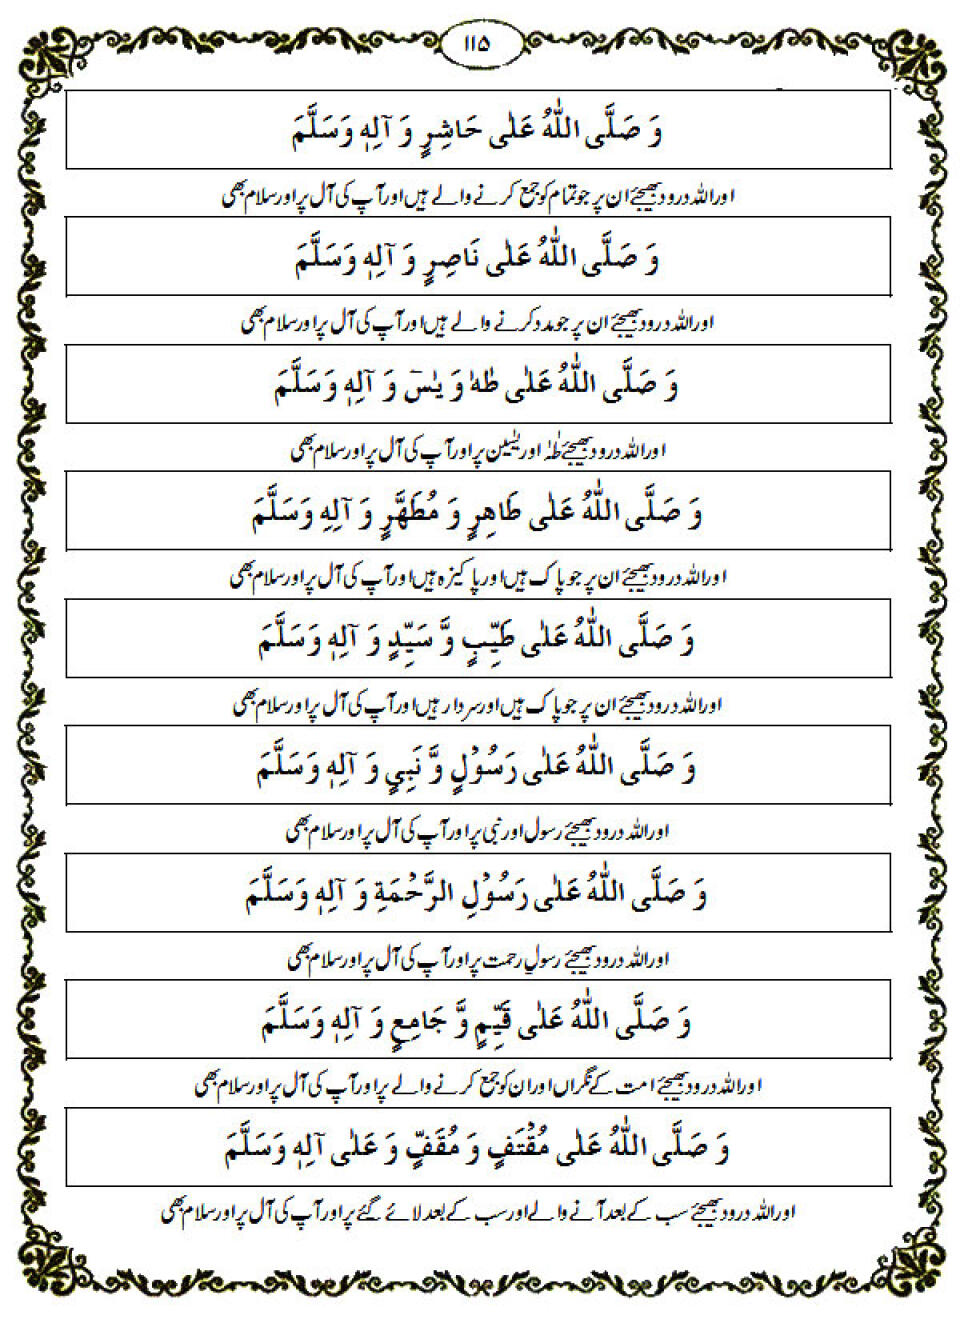 ۱۱۵
وَ صَلَّى اللّٰهُ عَلٰى حَاشِرٍ وَ آلِهٖ وَسَلَّمَ
اور اللہ درود بھیجئے ان پر جو تمام کو جمع کرنے والے ہیں اور آپ کی آل پر اور سلام بھی
وَ صَلَّى اللّٰهُ عَلٰى نَاصِرٍ وَ آلِهٖ وَسَلَّمَ
اور اللہ درود بھیجئے ان پر جو مدد کرنے والے ہیں اور آپ کی آل پر اور سلام بھی
وَ صَلَّى اللّٰهُ عَلٰى طٰهٰ وَ يٰسٓ وَ آلِهٖ وَسَلَّمَ
اور اللہ درود بھیجئے طٰہٰ اور یٰسین پر اور آپ کی آل پر اور سلام بھی
وَ صَلَّى اللّٰهُ عَلٰى طَاهِرٍ وَ مُطَهَّرٍ وَ آلِهِ وَسَلَّمَ
اور اللہ درود بھیجئے ان پر جو پاک ہیں اور پاکیزہ ہیں اور آپ کی آل پر اور سلام بھی
وَ صَلَّى اللّٰهُ عَلٰى طَيِّبٍ وَّ سَيِّدٍ وَ آلِهٖ وَسَلَّمَ
اور اللہ درود بھیجئے ان پر جو پاک ہیں اور سردار ہیں اور آپ کی آل پر اور سلام بھی
وَ صَلَّى اللّٰهُ عَلٰى رَسُوْلٍ وَّ نَبِيٍ وَ آلِهٖ وَسَلَّمَ
اور اللہ درود بھیجئے رسول اور نبی پر اور آپ کی آل پر اور سلام بھی
وَ صَلَّى اللّٰهُ عَلٰى رَسُوْلِ الرَّحْمَةِ وَ آلِهٖ وَسَلَّمَ
اور اللہ درود بھیجئے رسولِ رحمت پر اور آپ کی آل پر اور سلام بھی
وَ صَلَّى اللّٰهُ عَلٰى قَيِّمٍ وَّ جَامِعٍ وَ آلِهٖ وَسَلَّمَ
اور اللہ درود بھیجئے امت کے نگراں اور ان کو جمع کرنے والے پر اور آپ کی آل پر اور سلام بھی
وَ صَلَّى اللّٰهُ عَلٰى مُقْتَفٍ وَ مُقَفٍّ وَ عَلٰى آلِهٖ وَسَلَّمَ
اور اللہ درود بھیجئے سب کے بعد آنے والے اور سب کے بعد لائے گئے پر اور آپ کی آل پر اور سلام بھی